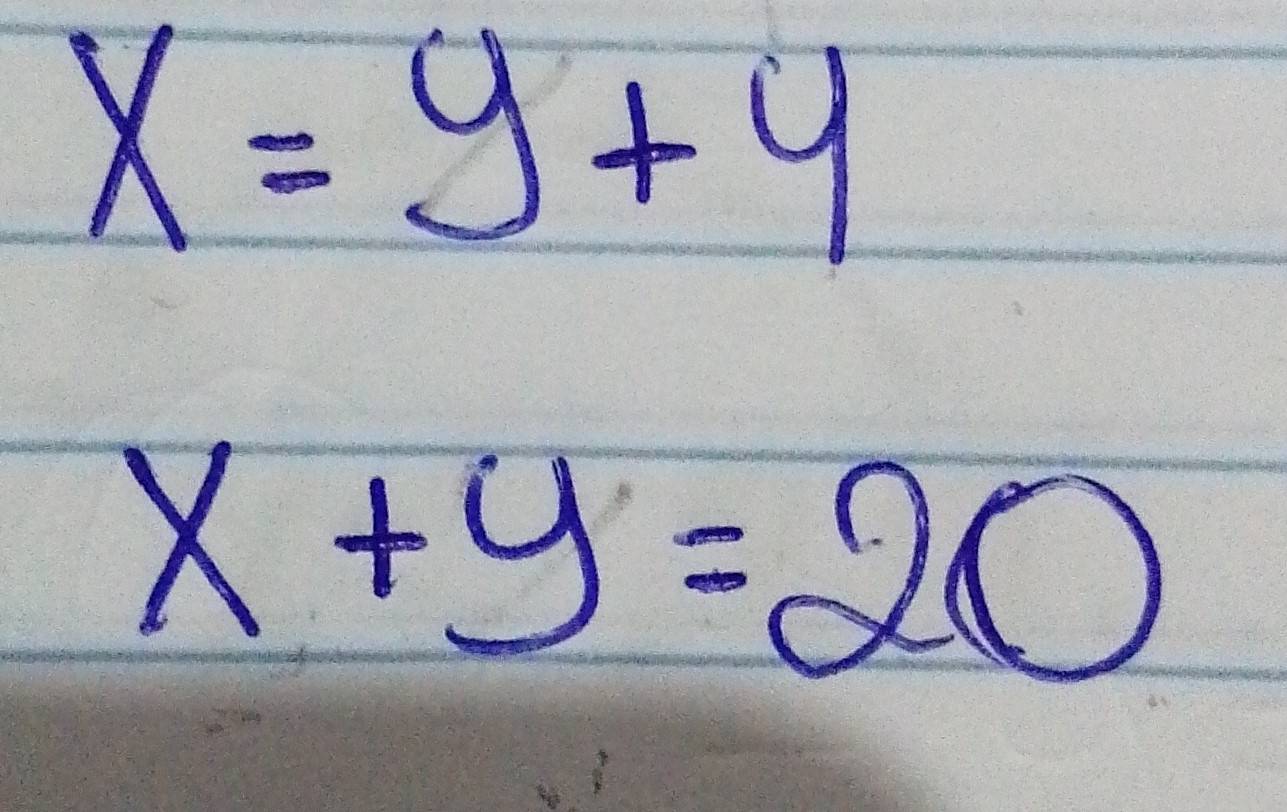 X = y + 4
X + y = 20